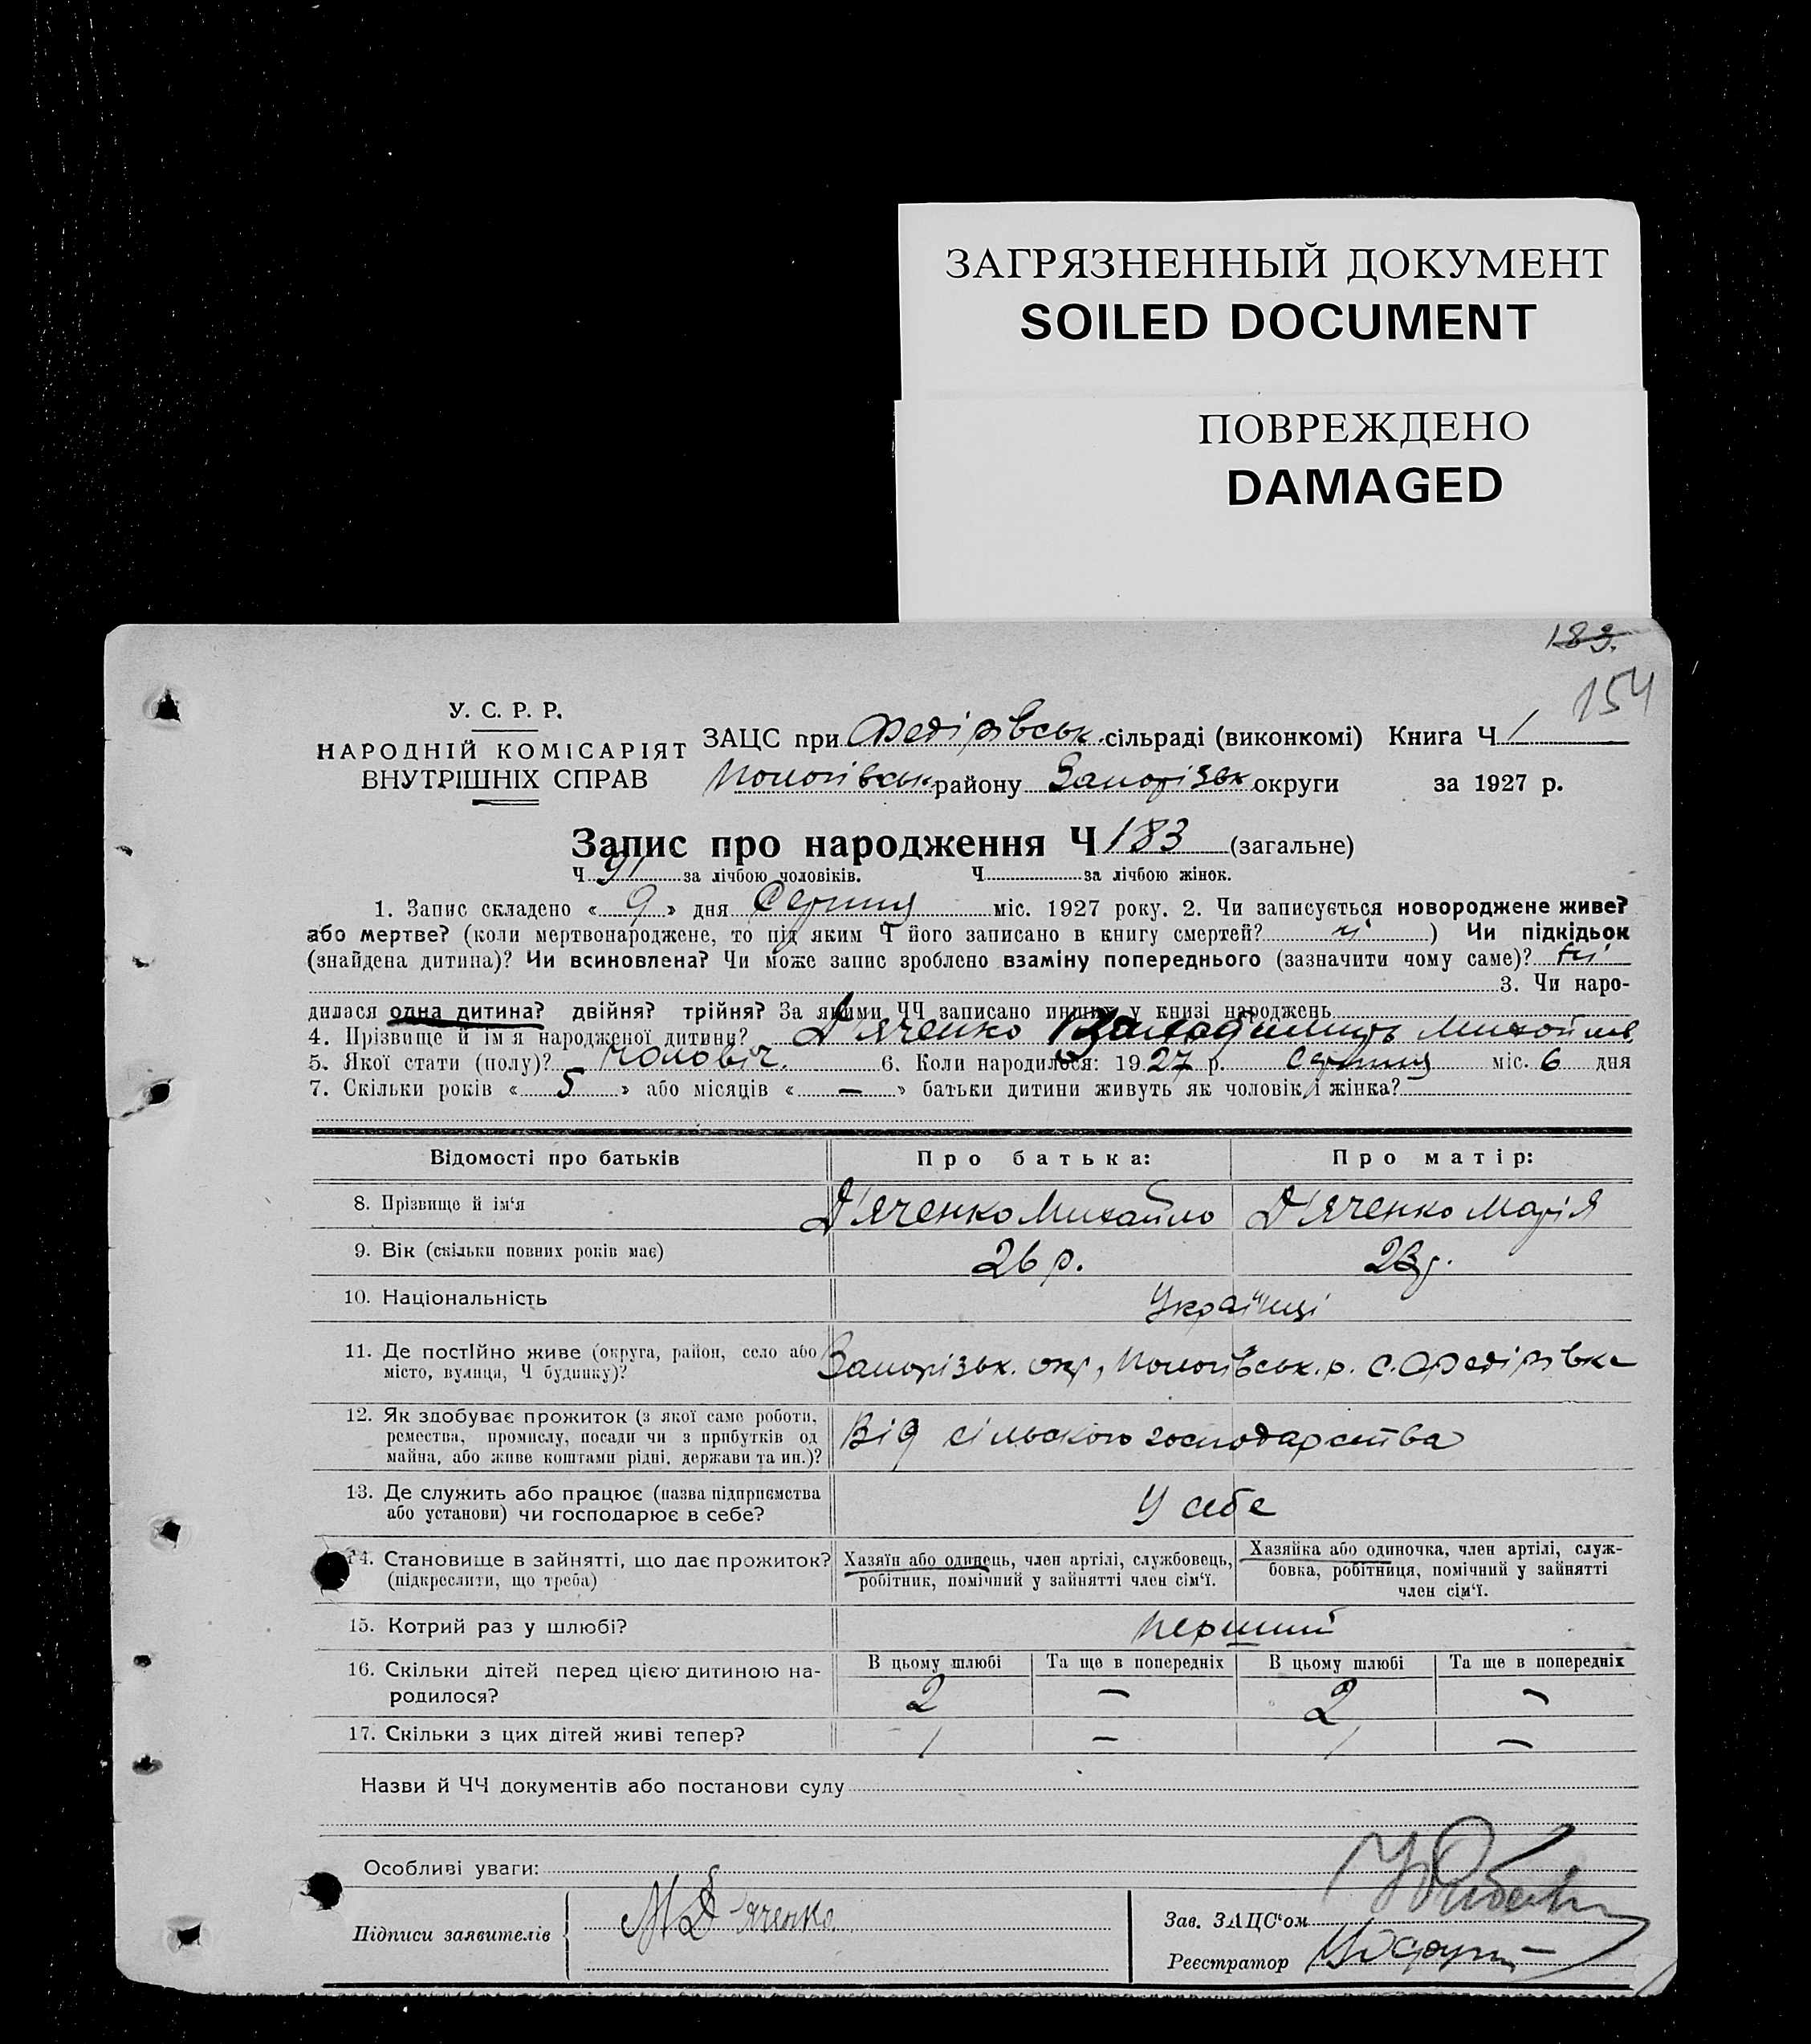 ЗАГРЯЗНЕННЫЙ ДОКУМЕНТ
SOILED DOCUMENT
ПОВРЕЖДЕНО
DAMAGED
183.
154
У. С. Р. Р.
НАРОДНІЙ КОМІСАРІЯТ
ВНУТРІШНІХ СПРАВ
ЗАЦС при Федірівськ. сільраді (виконкомі) Книга Ч 1
Пологівськ району Запорізьк округи за 1927 р.
Запис про народження Ч 183 (загальне)
Ч 91 за лічбою чоловіків. Ч за лічбою жінок.
1. Запис складено « 9 » дня Серпня міс. 1927 року. 2. Чи записується новороджене живе?
або мертве? (коли мертвонароджене, то під яким Ч його записано в книгу смертей? ні ) Чи підкідьок
(знайдена дитина)? Чи всиновлена? Чи може запис зроблено взаміну попереднього (зазначити чому саме)? ні
3. Чи наро-
дилася одна дитина? двійня? трійня? За якими ЧЧ записано инших у книзі народжень
4. Прізвище й ім'я народженої дитини? Д'яченко Володимир Михайлів
5. Якої стати (полу)? чоловіч. 6. Коли народилося: 1927 р. Серпня міс. 6 дня
7. Скільки років « 5 » або місяців « — » батьки дитини живуть як чоловік і жінка?
Відомості про батьків Про батька: Про матір:
8. Прізвище й ім'я Д'яченко Михайло Д'яченко Марія
9. Вік (скільки повних років має) 26 р. 23 р.
10. Національність Українці
11. Де постійно живе (округа, район, село або Запорізьк. окр, Пологівськ. р. с. Федірівка
місто, вулиця, Ч будинку)?
12. Як здобуває прожиток (з якої саме роботи,
ремества, промислу, посади чи з прибутків од Від сільского господарства
майна, або живе коштами рідні, держави та ин.)?
13. Де служить або працює (назва підприємства У себе
або установи) чи господарює в себе?
14. Становище в зайнятті, що дає прожиток? Хазяїн або одинець, член артілі, службовець, Хазяйка або одиночка, член артілі, служ-
(підкреслити, що треба) робітник, помічний у зайнятті член сім'ї. бовка, робітниця, помічний у зайнятті
член сім'ї.
15. Котрий раз у шлюбі? перший
16. Скільки дітей перед цією дитиною на- В цьому шлюбі Та ще в попередніх В цьому шлюбі Та ще в попередніх
родилося? 2 — 2 —
17. Скільки з цих дітей живі тепер? 1 — 1 —
Назви й ЧЧ документів або постанови суду
Особливі уваги:
Підписи заявителів М Д'яченко
Зав. ЗАЦС'ом
Реєстратор